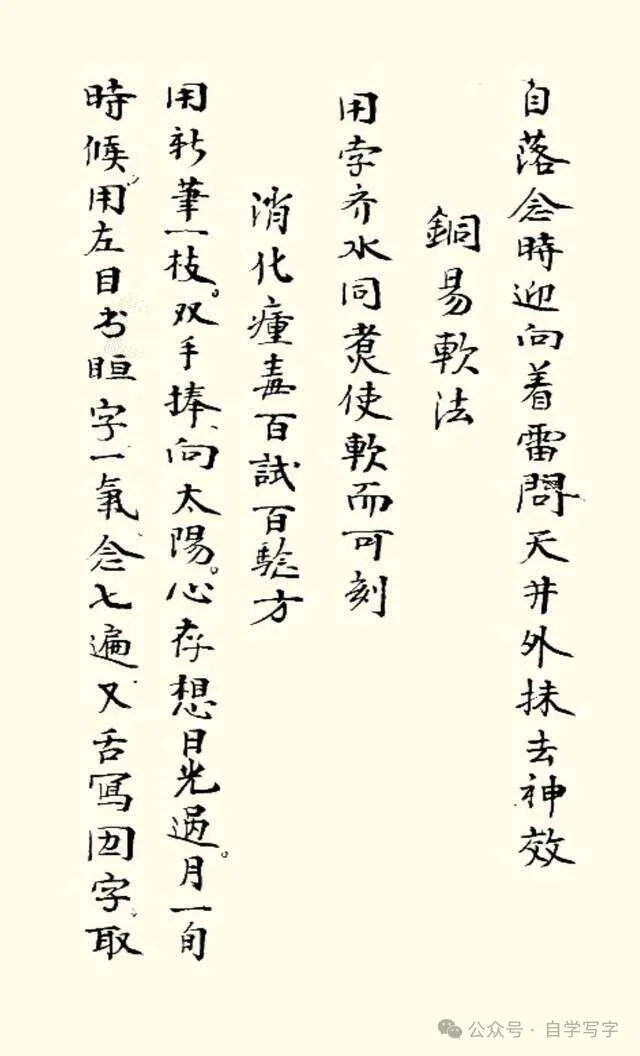 自落念時迎向着雷問天井外抹去神效
銅易軟法
用孛齐水同煑使軟而可刻
消化瘇毒百試百騐方
用新筆一枝。双手捧、向太陽。心存想日光遇。月一旬
時候。用左目书晅字一氣念七遍又舌寫囙字。取
公众号 · 自学写字